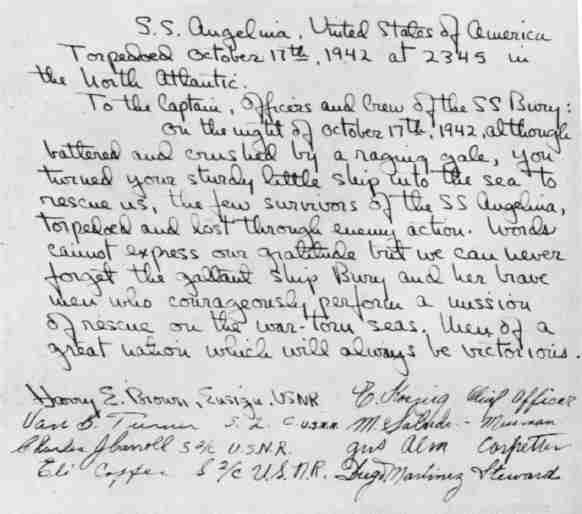 S.S. Angelina, United States of America
Torpedoed October 17th, 1942 at 2345 in
the North Atlantic.
To the Captain, Officers and Crew of the SS Bury:
On the night of October 17th, 1942, although
battered and crushed by a raging gale, you
turned your sturdy little ship into the sea to
rescue us, the few survivors of the SS Angelina,
torpedoed and lost through enemy action. Words
cannot express our gratitude but we can never
forget the gallant ship Bury and her brave
men who courageously perform a mission
of rescue on the war-torn seas. Men of a
great nation which will always be victorious.
Harry E. Brown, Ensign, USNR E. Koenig Chief Officer
Van B. Turner S. 2. C. U.S.N.R. - Messman
Charles J Carroll S 2/c U.S.N.R. Gus Alm Carpetter
Eli S 2/c U.S.N.R. Diego Martinez Steward